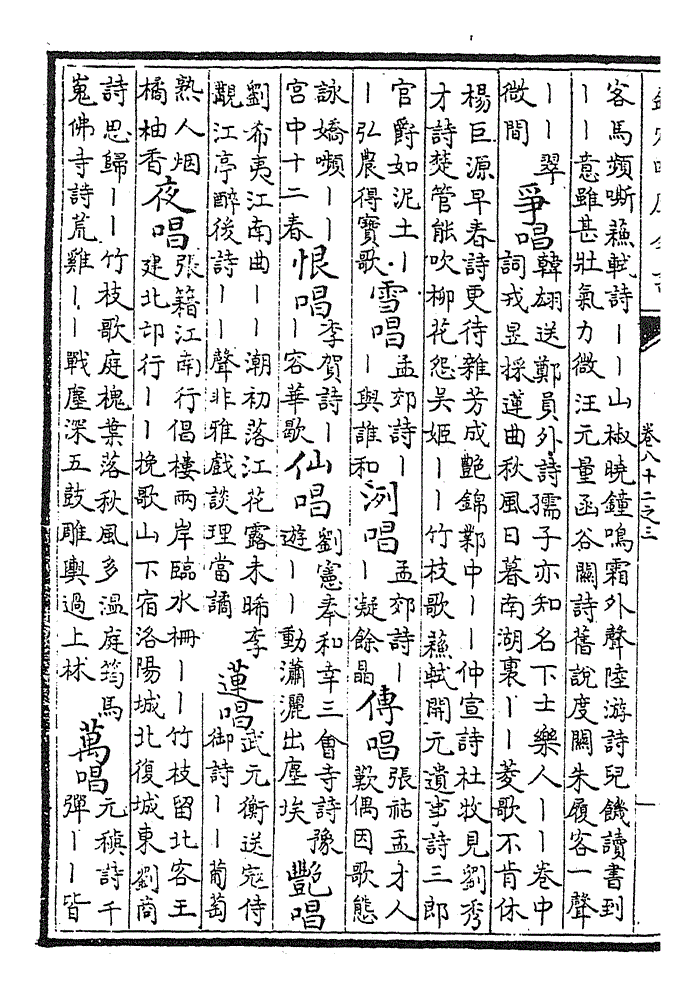 卷八十二之三
客馬頻嘶蘓軾詩丨丨山椒曉鐘鳴霜外聲陸游詩兒饑讀書到
丨丨意雖甚壯氣力微汪元量函谷關詩舊說度關朱履客一聲
丨丨翠
微間
爭唱
韓翃送鄭員外詩孺子亦知名下士樂人丨丨卷中
詞戎昱採蓮曲秋風日暮南湖裏丨丨菱歌不肯休
楊巨源早春詩更待雜芳成艷錦鄴中丨丨仲宣詩杜牧見劉秀
才詩楚管能吹柳花怨吳姬丨丨竹枝歌蘓軾開元遺事詩三郎
官爵如泥土丨
丨弘農得寶歌
雪唱
孟郊詩丨
丨與誰和
洌唱
孟郊詩丨
丨凝餘晶
傳唱
張祜孟才人
歎偶因歌態
詠嬌嚬丨丨
宮中十二春
恨唱
李賀詩丨
丨容華歇
仙唱
劉憲奉和幸三會寺詩豫
遊丨丨動瀟灑出塵埃
豔唱
劉希夷江南曲丨丨潮初落江花露未晞李
觀江亭醉後詩丨丨聲非雅戲談理當譎
蓮唱
武元衡送寇侍
御詩丨丨葡萄
熟人烟
橘柚香
夜唱
張籍江南行倡樓兩岸臨水柵丨丨竹枝留北客王
建北邙行丨丨挽歌山下宿洛陽城北復城東劉商
詩思歸丨丨竹枝歌庭槐葉落秋風多溫庭筠馬
嵬佛寺詩荒雞丨丨戰塵深五鼓雕輿過上林
萬唱
元稹詩千
彈丨丨皆